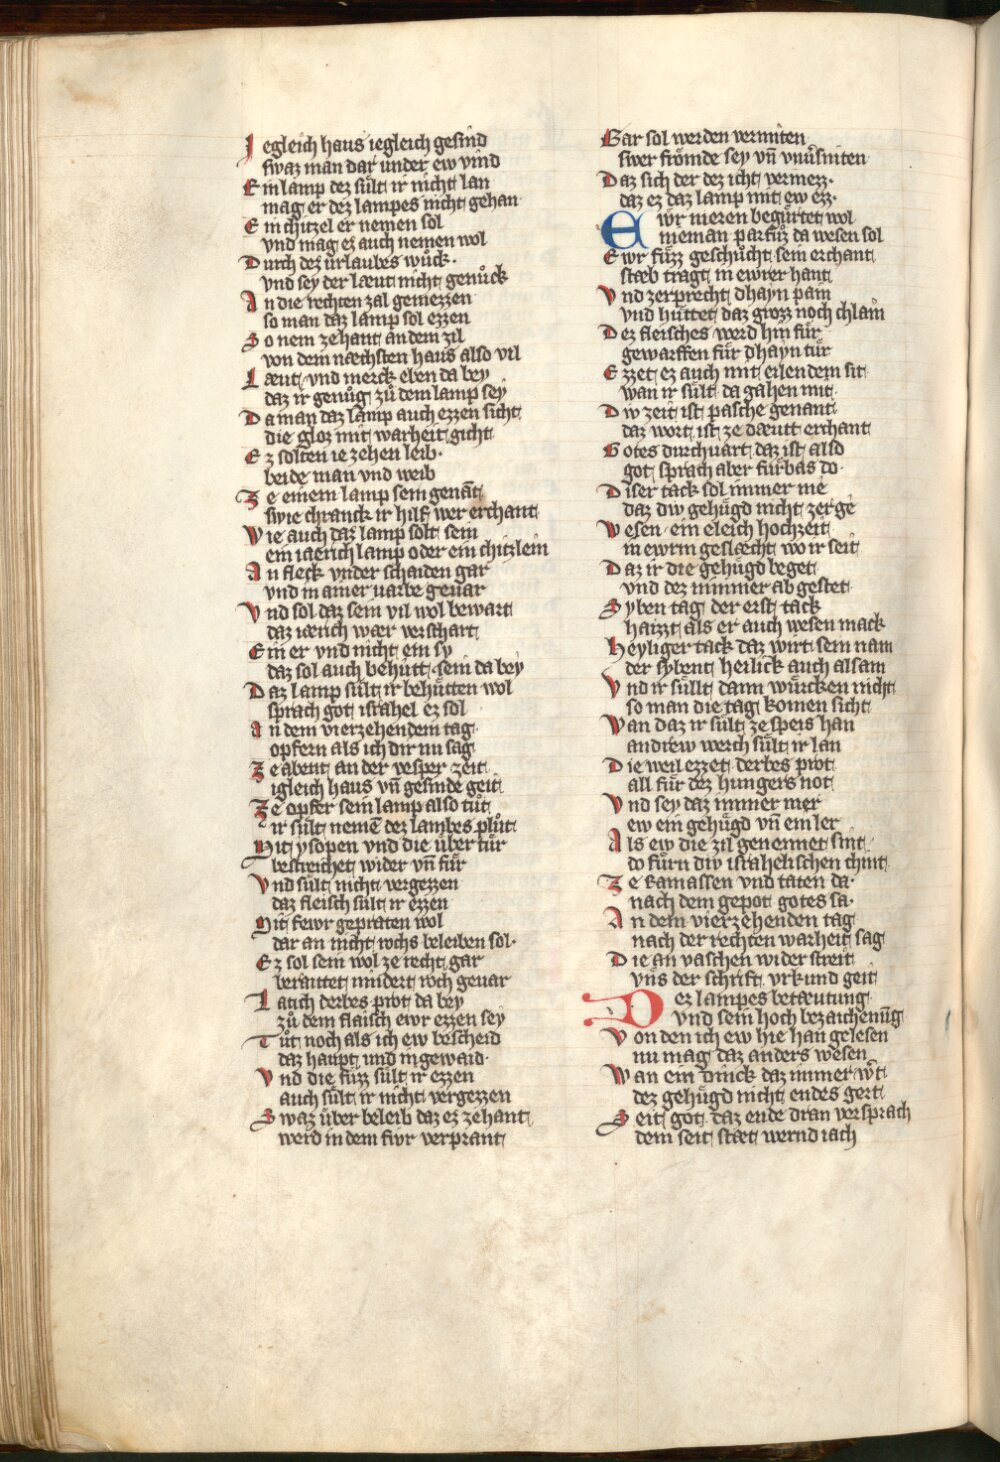 Iegleich haus iegleich gesind
swaz man dar under ew vind
Ein lamp dez sült ir nicht lan
mag er dez lampes nicht gehan
Ein chitzel er nemen sol
vnd mag ez auch nemen wol
Durch dez vrlaubes wuͦck.
vnd sey der læut nicht genuͦck
An die rechten zal gemezzen
so man daz lamp sol ezzen
So nem zehant an dem zil
von dem næchsten haus also vil
Læut vnd merck eben da bey
daz ir genuͦg zuͦ dem lamp sey
Da man daz lamp auch ezzen sicht
die gloz mit warheit gicht
Ez solten ie zehen leib.
beide man vnd weib
Ze einem lamp sein genāt
swie chranck ir hilf wer erchant
Wie auch daz lamp solt sein
ein iærich lamp oder ein chitzlein
An fleck vnder schaiden gar
vnd in ainer varbe gevar
Vnd sol daz sein vil wol bewart
daz iærich wær verschart
Ein er vnd nicht ein sy
daz sol auch behütt sein da bey
Daz lamp sült ir behütten wol
sprach got israhel ez sol
An dem vierzehendem tag
opfern als ich dir nu sag
Ze abent an der vesper zeit
igleich haus vn̄ gesinde geit
Ze opfer sein lamp also tuͦt
ir sült nemē dez lambes pluͦt
Mit ysopen vnd die über tür
bestreichet wider vn̄ für
Vnd sült nicht vergezzen
daz fleisch sült ir ezzen
Mit fewr gepraten wol
dar an nicht rochs beleiben sol.
Ez sol sein wol ze recht gar
beraittet mindert roch gevar
Latich derbes prot da bey
zuͦ dem flaisch ewr ezzen sey
Tuͦt noch als ich ew bescheid
daz haupt vnd ingewaid.
Vnd die füzz sült ir ezzen
auch sült ir nicht vergezzen
Swaz über beleib daz ez zehant
werd in dem fivr verprant
Gar sol werden vermiten
swer frömde sey vn̄ vnuͦsniten
Daz sich der dez icht vermezz.
daz ez daz lamp mit ew ezz.
Ewr nieren begürtet wol
nieman parfuͦz da wesen sol
Ewr füzz geschuͦcht sein erchant
stæb tragt in ewrer hant
Vnd zerprecht dhayn pain
vnd hüttet daz grozz noch chlain
Dez fleisches werd hin für
gewarffen für dhayn tür
Ezzet ez auch mit eilendem sit
wan ir sült da gahen mit
Diw zeit ist pasche genant
daz wort ist ze dæutt erchant
Gotes durchvart daz ist also
got sprach aber fürbas do.
Diser tack sol immer me
daz diw gehügd nicht zerge
Wesen ein eleich hochzeit
in ewrm geslæcht wo ir seit
Daz ir die gehügd beget
vnd dez nimmer ab gestet
Syben tag der erst tack
haizzt als er auch wesen mack
Heyliger tack daz wirt sein nam
der sybent heilick auch alsam
Vnd ir süllt dann würcken nicht
so man die tag komen sicht
Wan daz ir sült ze speis han
andrew werch sült ir lan
Die weil ezzet derbes prot
all für dez hungers not
Vnd sey daz immer mer
ew ein gehügd vn̄ ein ler
Als ew die zil genennet sint
do fürn diw israhelischen chint
Ze Ramassen vnd taten da.
nach dem gepot gotes sa.
An dem vierzehenden tag
nach der rechten warheit sag
Die an vaschen wider streit
vns der schrift vrkund geit
Dez lampes betæutung
vnd sein hoch bezaichenūg
Von den ich ew hie han gelesen
nu mag daz anders wesen
Wan ein dinck daz immer wͦt
dez gehügd nicht endes gert
Seit got daz ende dran versprach
dem seit stæt wernd iach